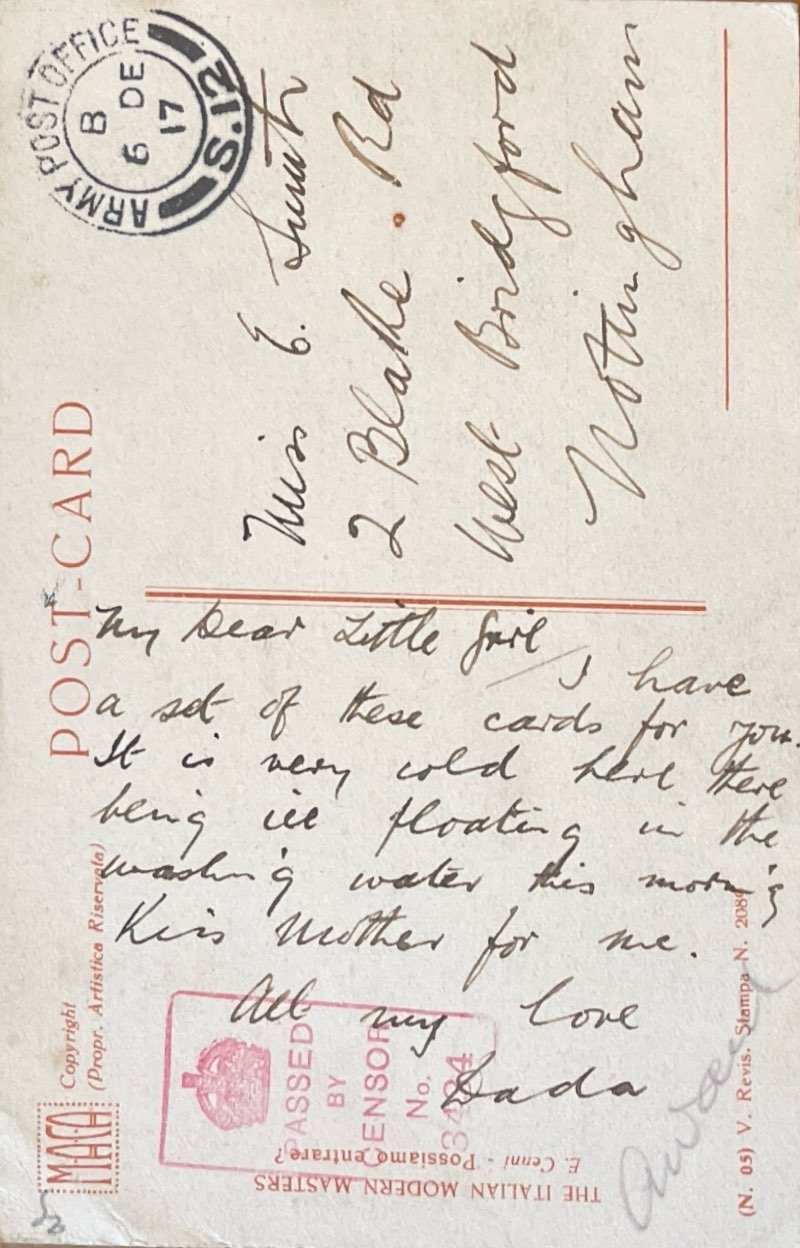 POST-CARD
ARMY POST OFFICE
S.12
B
6 DE
17
Miss E. Smith
2 Blake Rd
West Bridgford
Nottingham
My Dear Little Girl
I have
a set of these cards for you.
It is very cold here there
being ice floating in the
washing water this morning
Kiss Mother for me.
All my love
Dada
PASSED
BY
CENSOR
No.
MACA
Copyright
(Propr. Artistica Riservata)
THE ITALIAN MODERN MASTERS
E. Cenni - Possiamo entrare?
(N. 05) V. Revis. Stampa N. 2089